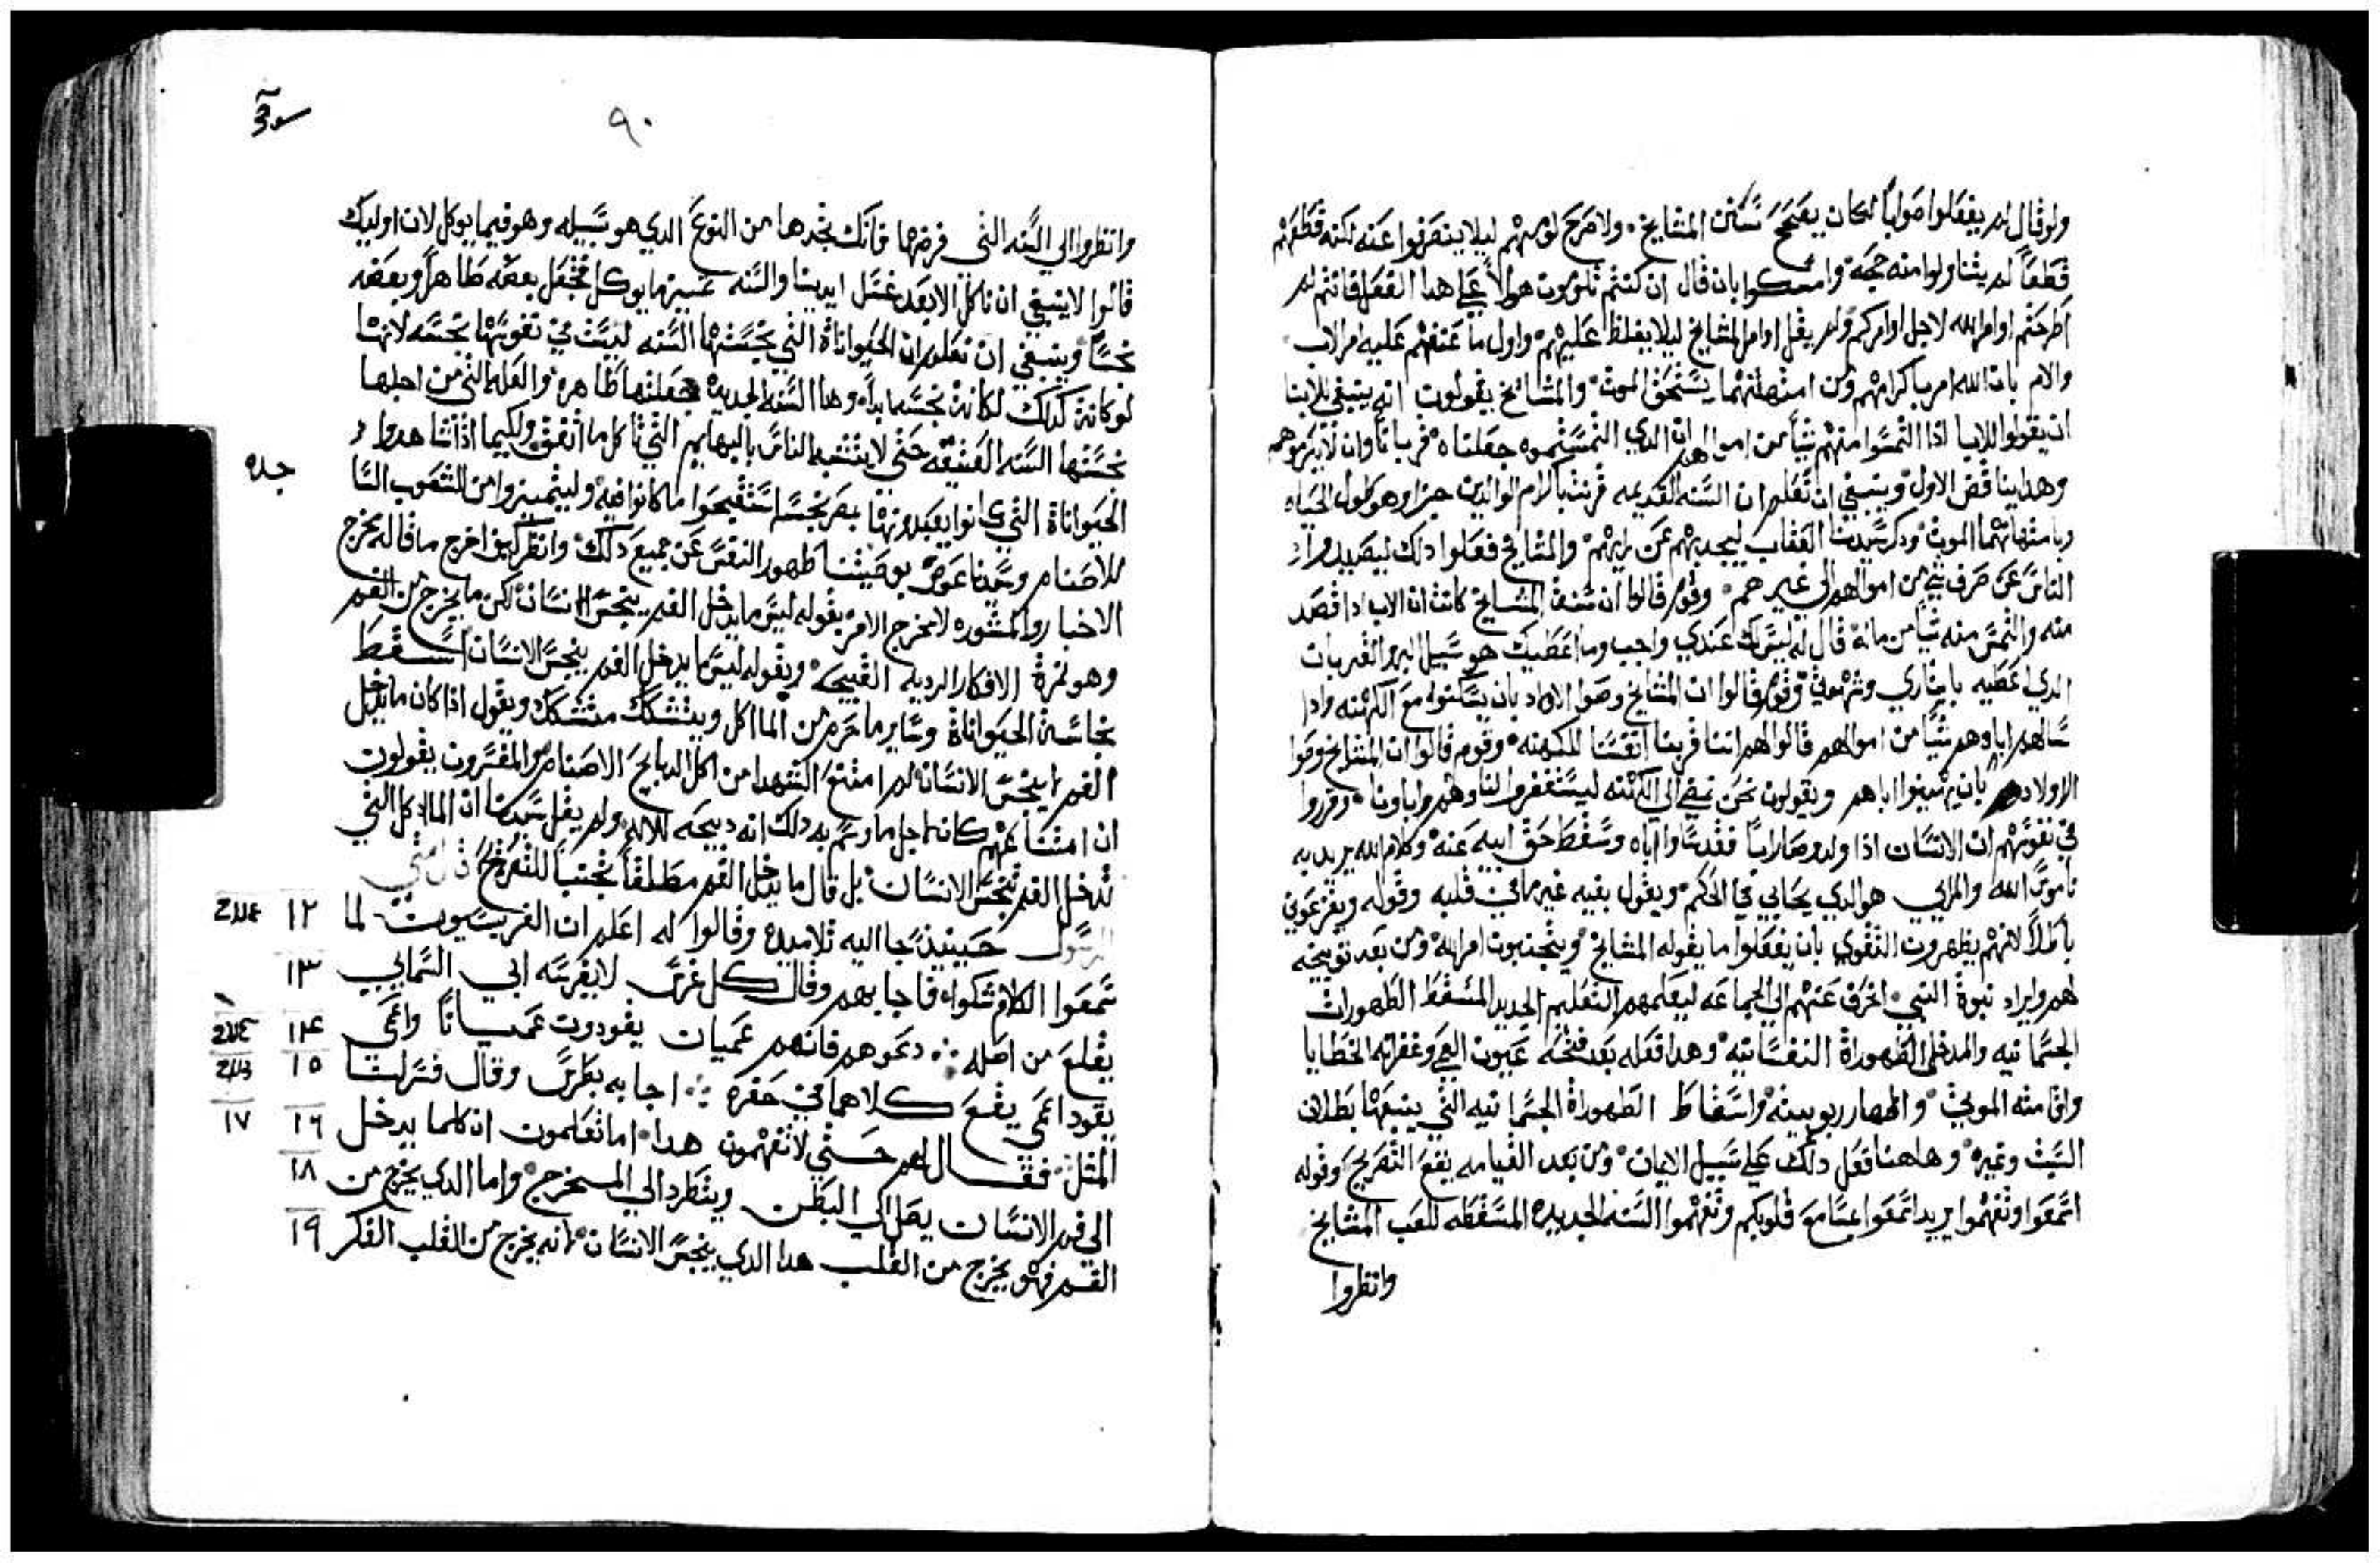 ولو قال لم يفعلوا صواباً لكان يصحح سنن المشايخ ولا صرح لومهم ليلا ينصرفوا عنه لكنه قطعهم
قطعاً لم يتناولوا منه حجه وامسكوا بان قال ان كنتم تلومون هولاً علي هدا الفعل فانتم لم
اطرحتم اوامر الله لاجل اوامركم ولم يقل اوامر المشايخ ليلا يغلظ عليهم واول ما عنفهم عليه امر الاب
والام بان الله امر باكرامهم ومن امتهانهما يستحق الموت والمشايخ يقولون انه ينبغي للابنا
ان يقولوا للابا اذا التمسوا منهم شياً من اموالهم ان الدي التمستموه جعلناه قرباناً وان لا يكرموهم
وهدا يناقض الاول وينبغي ان تعلم ان السنه القديمه قرنت باكرام الوالدين خيرا وهو طول الحياه
وبامتهانهما الموت ودكر سيدنا العقاب ليجدبهم عن رايهم والمشايخ فعلوا دلك ليصيدوا
الناس عن صرف شي من اموالهم الي غيرهم وقوم قالوا ان سنن المشايخ كانت ان الاب ادا قصد
منه والتمس منه شياً من ماله قال له ليس لك عندي واجب وما اعطيك هو سبيل البر والقربات
الدي اعطيه بايثاري وشهوتي وقوم قالوا ان المشايخ وصوا الاولاد بان يسكنوا مع الكهنه وادا
سالهم اباوهم شياً من اموالهم قالوا لهم اننا قربنا انفسنا للكهنه وقوم قالوا ان المشايخ وصوا
الاولاد بان يهينوا اباهم ويقولون نحن نمضي الي الكهنه ليستغفروا لنا ولهم واباونا وقرروا
في نفوسهم ان الانسان اذا ولد وصار ابناً فقد ساوا اباه وسقط حق ابيه عنه وكلام الله يريد به
ناموس الله والمرايي هو الدي يحابي في الحكم ويقول بفيه غير ما في قلبه وقوله ويفزعوني
باطلاً لانهم يظهرون التقوي بان يفعلوا ما يقوله المشايخ ويتجنبون امر الله ومن بعد توبيخه
لهم وايراد نبوة النبي انحرف عنهم الي الجماعه ليعلمهم التعليم الجديد المسقط الطهورات
الجسمانيه والمدخل الطهوراة النفسانيه وهدا فعله بعد فتحه عيون العمي وغفرانه الخطايا
واقامته الموتي واظهار ربوبيته واسقاط الطهوراة الجسمانيه التي يتبعها بطلان
السبت وغيره وهاهنا فعل دلك علي سبيل الايمان ومن بعد القيامه يقع التصريح وقوله
اسمعوا وتفهموا يريد اسمعوا بمسامع قلوبكم وتفهموا السنه الجديده المسقطه للعب المشايخ
وانظروا
٩٠
وانظروا الي السنه التي فرضها فانك تجدها من النوع الدي هو سبيله وهو فيما يوكل لان اوليك
قالوا لا ينبغي ان ناكل الا بعد غسل ايدينا والسنه تميز ما يوكل فتجعل بعضه طاهراً وبعضه
نجساً وينبغي ان تعلم ان الحيواناة التي نجستها السنه ليست في نفوسها نجسه لانها
لو كانة كدلك لكانة نجسه ابداً وهدا السنه الجديده جعلتها طاهره والعله التي من اجلها
نجستها السنه العتيقه حتي لا يتشبه الناس بالبهايم التي تاكل ما اتفق ولكيما اذا شاهدوا
الحيواناة التي كانوا يعبدونها بمصر نجسه استقبحوا ما كانوا فيه وليتميزوا من الشعوب
للاصنام وسيدنا عوض بوصيتنا طهور النفس عن جميع دلك وانظر كيف اخرج ما قاله مخرج
الاخبار والمشوره لا مخرج الامر بقوله ليس ما يدخل الفم ينجس الانسان لكن ما يخرج من الفم
وهو ثمرة الافكار الرديه القبيحه وبقوله ليس ما يدخل الفم ينجس الانسان اسقط
نجاسة الحيواناة وساير ما حرم من الماكل ويتشكك متشكك ويقول اذا كان ما يدخل
الفم لا ينجس الانسان لم امتنع الشهدا من اكل الدبايح الاصنام والمفسرون يقولون
ان امتناعهم كانه لاجل ما وسم به دلك انه دبيحه للاله ولم يقل سيدنا ان الماكل التي
تدخل الفم تنجس الانسان بل قال ما يدخل الفم مطلقاً تجنباً للتصريح قال متي
الرسول حينيذ جا اليه تلاميده وقالوا له اعلم ان الفريسيون لما ١٢
سمعوا الكلام شكوا فاجابهم وقال كل غرس لا يغرسه ابي السمايي ١٣
يقلع من اصله دعوهم فانهم عميان يقودون عمياناً واعمي ١٤
يقود اعمي يقع كلاهما في حفره اجابه بطرس وقال فسر لنا ١٥
المثل فقال لهم حتي لا تفهمون هدا اما تعلمون ان كلما يدخل ١٦ ١٧
الي فم الانسان يصل الي البطن وينطرد الي المخرج واما الدي يخرج من ١٨
الفم فهو يخرج من القلب هدا الدي ينجس الانسان لانه يخرج من القلب الفكر ١٩